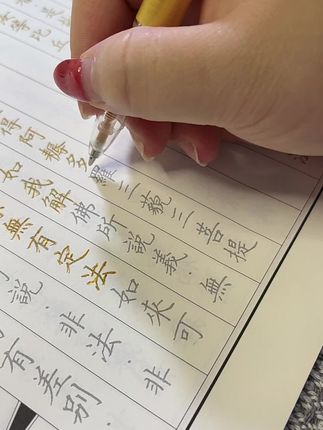 等比丘
得阿耨多羅三藐三菩提
如我解佛所說義．無
無有定法如來可
說．非法．非
有差別．